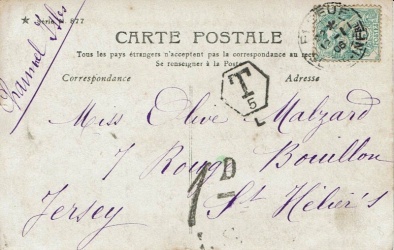 ★ Série 877
Channel Isles
CARTE POSTALE
Tous les pays étrangers n'acceptent pas la correspondance au rec
Se renseigner à la Poste
Correspondance Adresse
T
5
L
Miss Olive Malzard
7 Rouge Bouillon
Jersey St Hélier's
1D